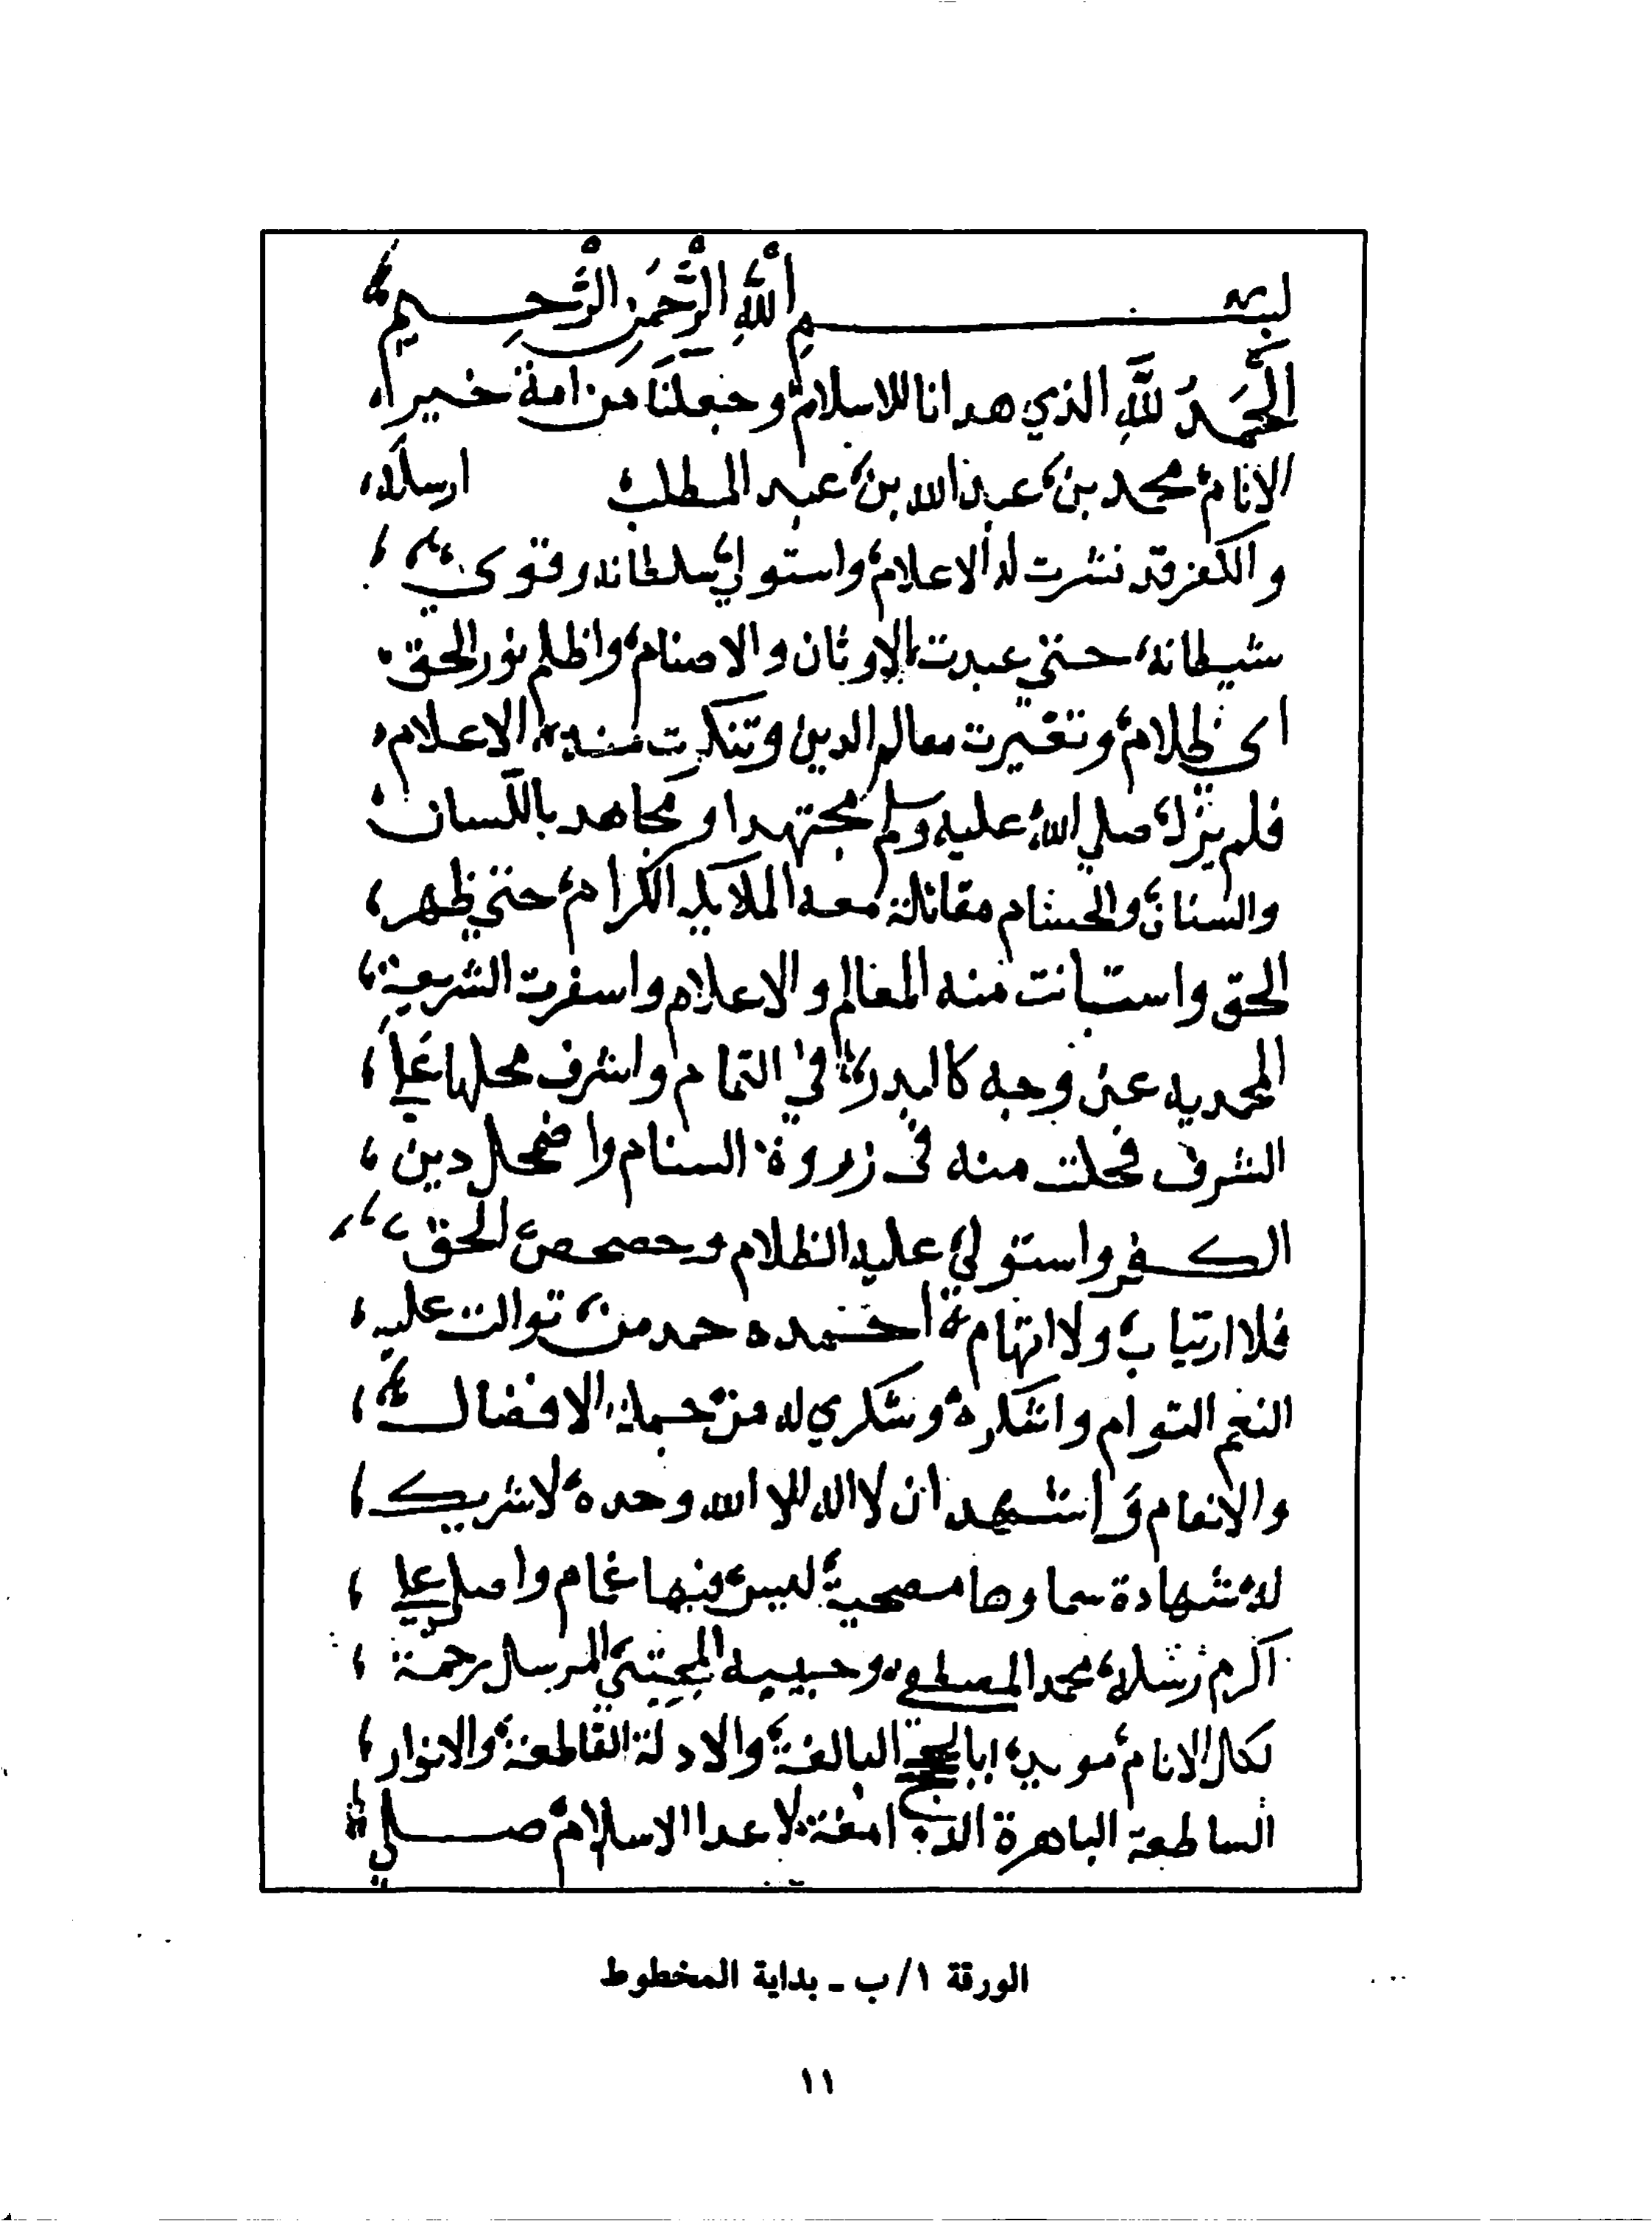 بسم اللهِ الرَّحْمَنِ الرَّحِيمِ
الْحَمْدُ لِلَّهِ الذي هدانا للاسلام وجعلنا من امة خير
الانام محمد بن عبد الله بن عبد المطلب ارسله
والكفر قد نشرت له الاعلام واستولي سلطانه وقوي
شيطانه حتي عبدت الاوثان والاصنام واظلم نور الحق
اي ظلام وتغيرت معالم الدين وتنكرت منه الاعلام
فلم يزل صلي الله عليه وسلم مجتهدا ومجاهد باللسان
والسنان والحسام مقاتلة معه الملايكه الكرام حتي ظهر
الحق واستبانت منه المعالم والاعلام واسفرت الشريعة
المحمديه عن وجه كالبدر في التمام واشرف محلها علي
الشرف فحلت منه في زروة السنام واضمحل دين
الكفر واستولي عليه الظلام وحصحص الحق
فلا ارتياب ولا اتهام احمده حمد من توالت عليه
النعم التوام واشكره وشكري له من جملة الافضال
والانعام وَاشهد ان لا اله الا الله وحده لا شريك
له شهادة سماوها مصحية ليس فيها غمام واصلي علي
اكرم رسله محمد المصطفي وحبيبه المجتبي المرسل رحمة
لكل الانام مويد بالحجج البالغة والادلة القاطعة والانوار
الساطعة الباهرة لاعدا الاسلام صلي
الورقة ١/ب - بداية المخطوط
١١